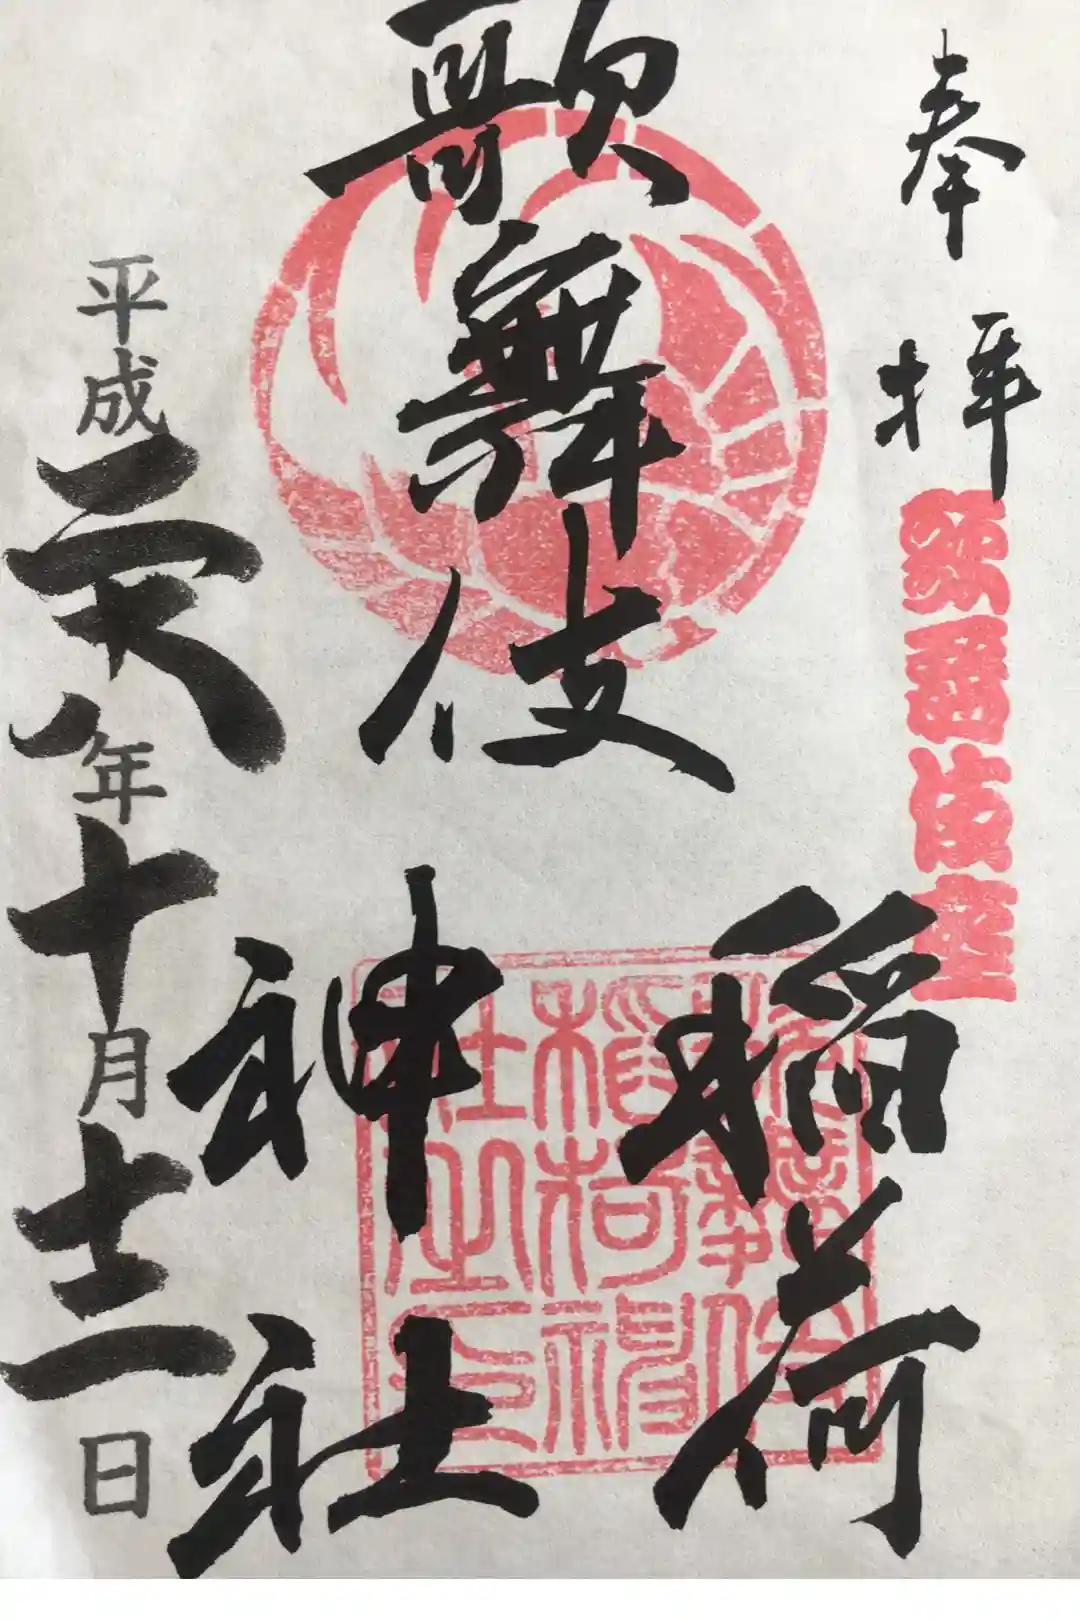 奉拝
歌舞伎座
歌舞伎
稲荷
神社
平成二十八年十月十二日
歌舞伎
稲荷神
社之印